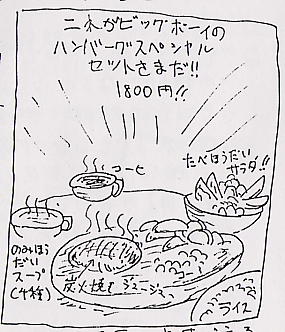 これがビッグボーイの
ハンバーグスペシャル
セットさまだ!!
1800円!!
コーヒ
たべほうだい
サラダ!!
のみほう
だい
スープ
(4種)
炭火焼き ジュージュー
コーン
ライス